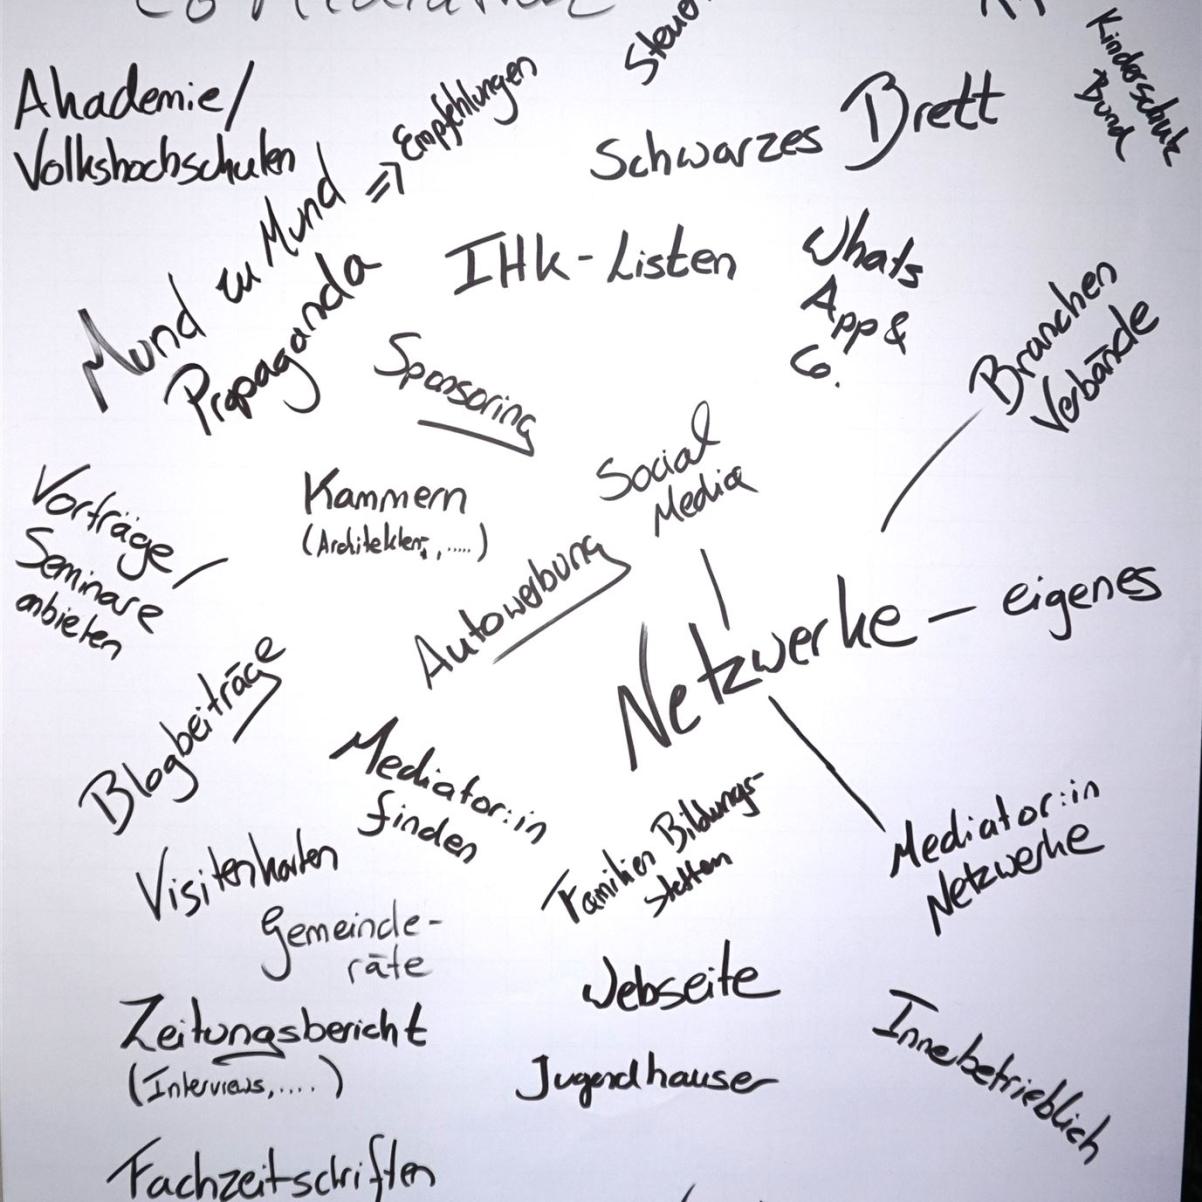 Co Mediation
Steuer
Kinderschutz
Bund
Akademie/
Volkshochschulen
Mund zu Mund => Empfehlungen
Propaganda
Schwarzes Brett
IHK-Listen
Whats
App &
Co.
Branchen
Verbände
Sponsoring
Social
Media
Kammern
(Architekten, .....)
Vorträge
Seminare
anbieten
Autowerbung
Netzwerke - eigenes
Blogbeiträge
Mediator:in
finden
Familien Bildungs-
stätten
Mediator:in
Netzwerke
Visitenkarten
Gemeinde-
räte
Webseite
Zeitungsbericht
(Interviews, ....)
Jugendhäuser
Innebetrieblich
Fachzeitschriften